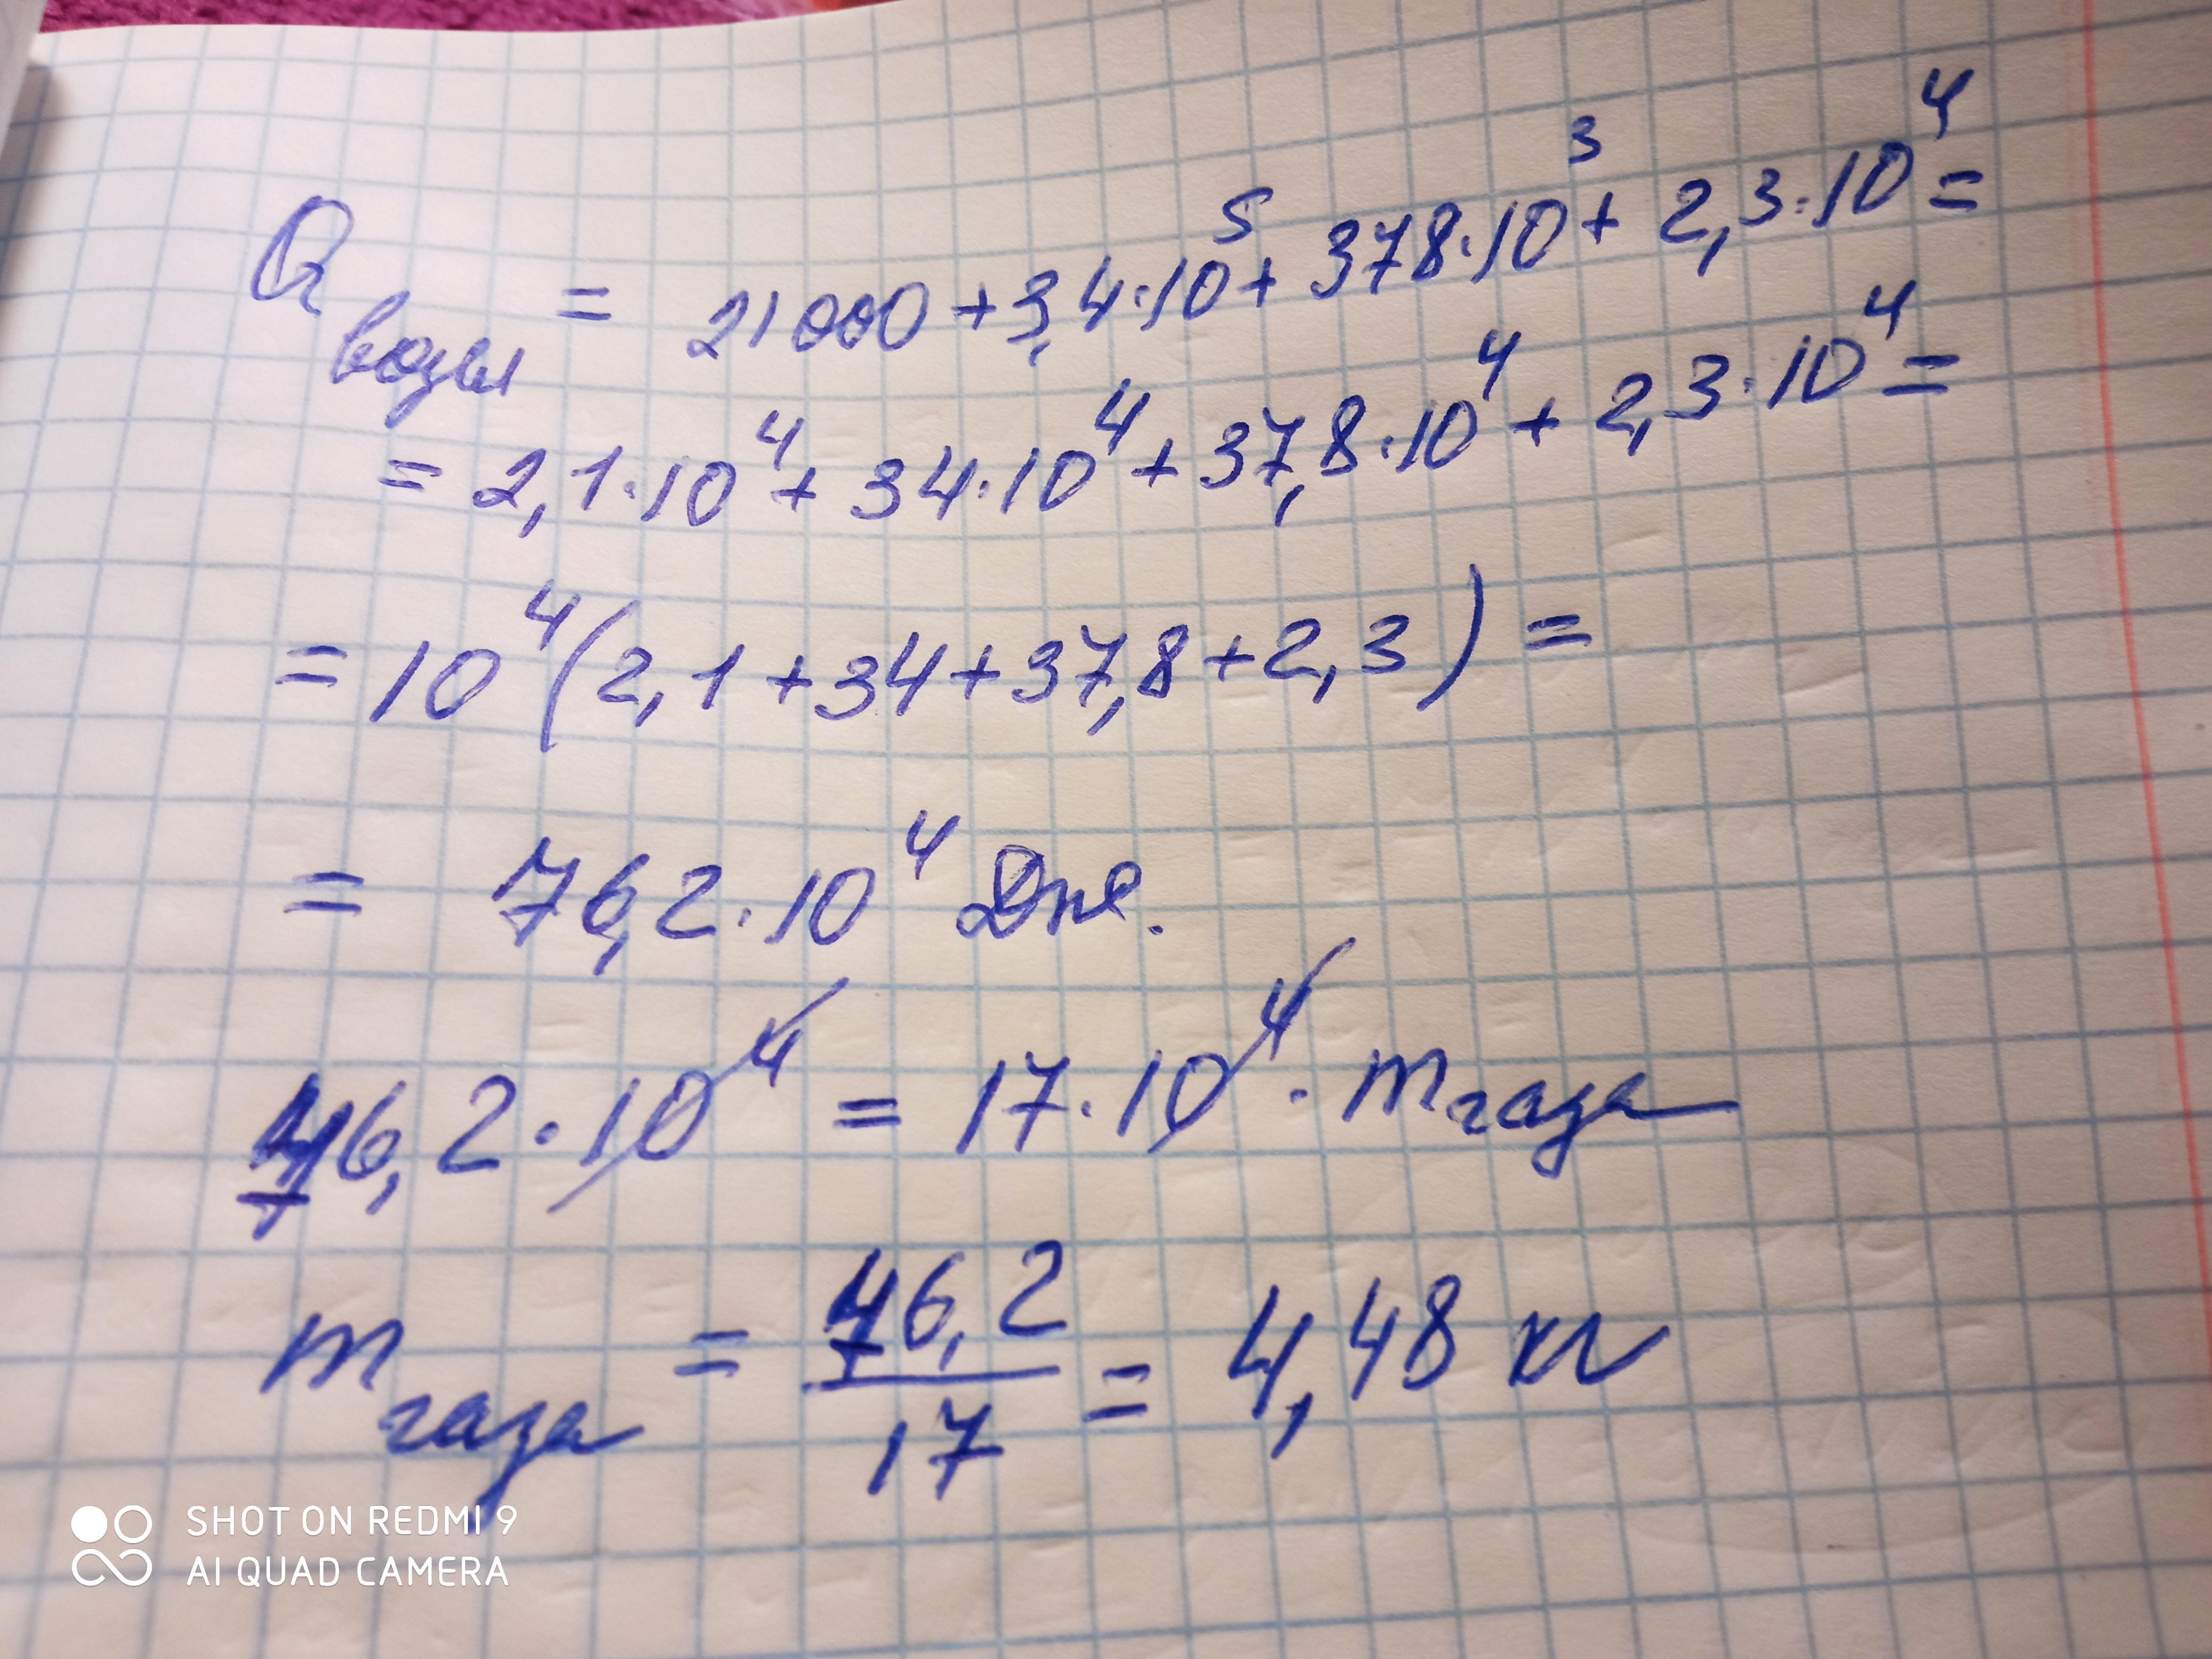 Q воды = 21000 + 3,4·10⁵ + 378·10³ + 2,3·10⁴ =
= 2,1·10⁴ + 34·10⁴ + 37,8·10⁴ + 2,3·10⁴ =
= 10⁴(2,1 + 34 + 37,8 + 2,3) =
= 76,2·10⁴ Дж.
76,2·10⁴ = 17·10⁴ · m газа
m газа = 76,2 / 17 = 4,48 кг
SHOT ON REDMI 9
AI QUAD CAMERA